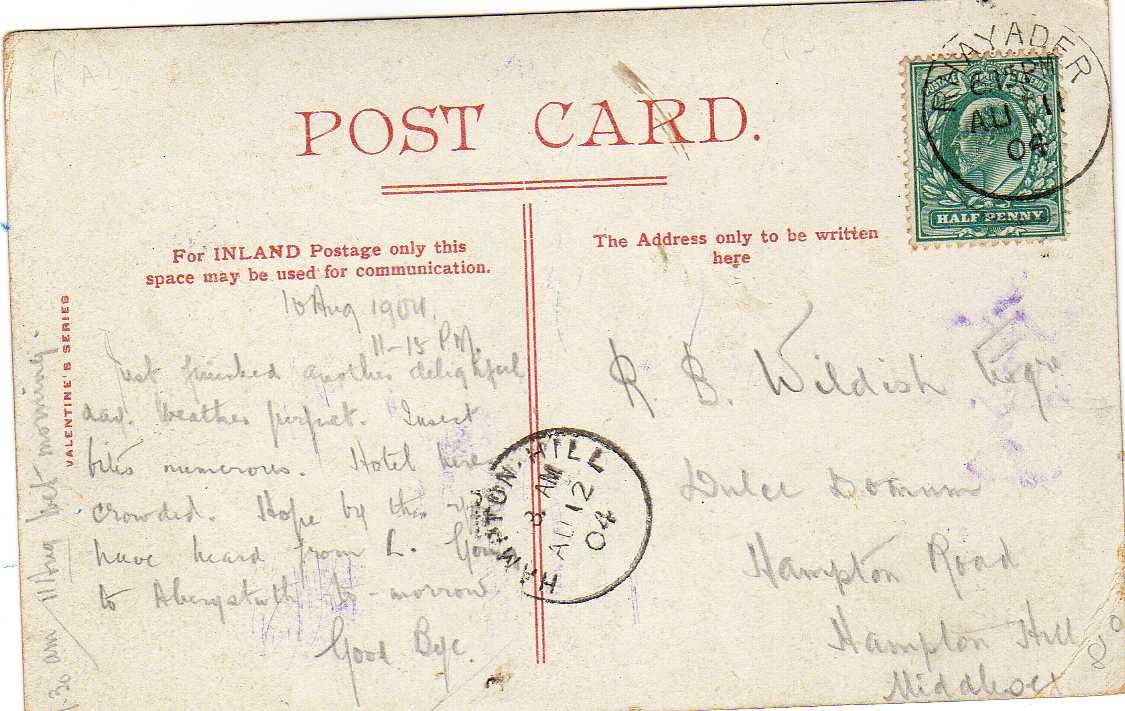 POST CARD.
For INLAND Postage only this
space may be used for communication.
The Address only to be written
here
VALENTINE'S SERIES
10 Aug 1904.
11-15 PM.
Just finished another delightful
day. Weather perfect. Insect
bites numerous. Hotel here
crowded. Hope by this
have heard from L.
to Aberystwth to-morrow
Good Bye.
.30 am 11 Aug wet morning.
R. B. Wildish Esqre
Dulce Domum
Hampton Road
Hampton Hill
Middlesex
HALF PENNY
RHAYADER
AU 11
04
HAMPTON-HILL
8 AM
AU 12
04